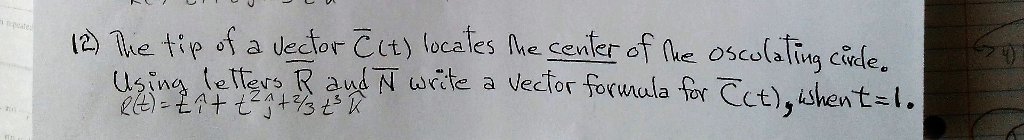 12) The tip of a vector C̅(t) locates the center of the osculating circle.
Using letters R̅ and N̅ write a vector formula for C̅(t), when t=1.
R(t)=tî+t²ĵ+⅔t³k̂